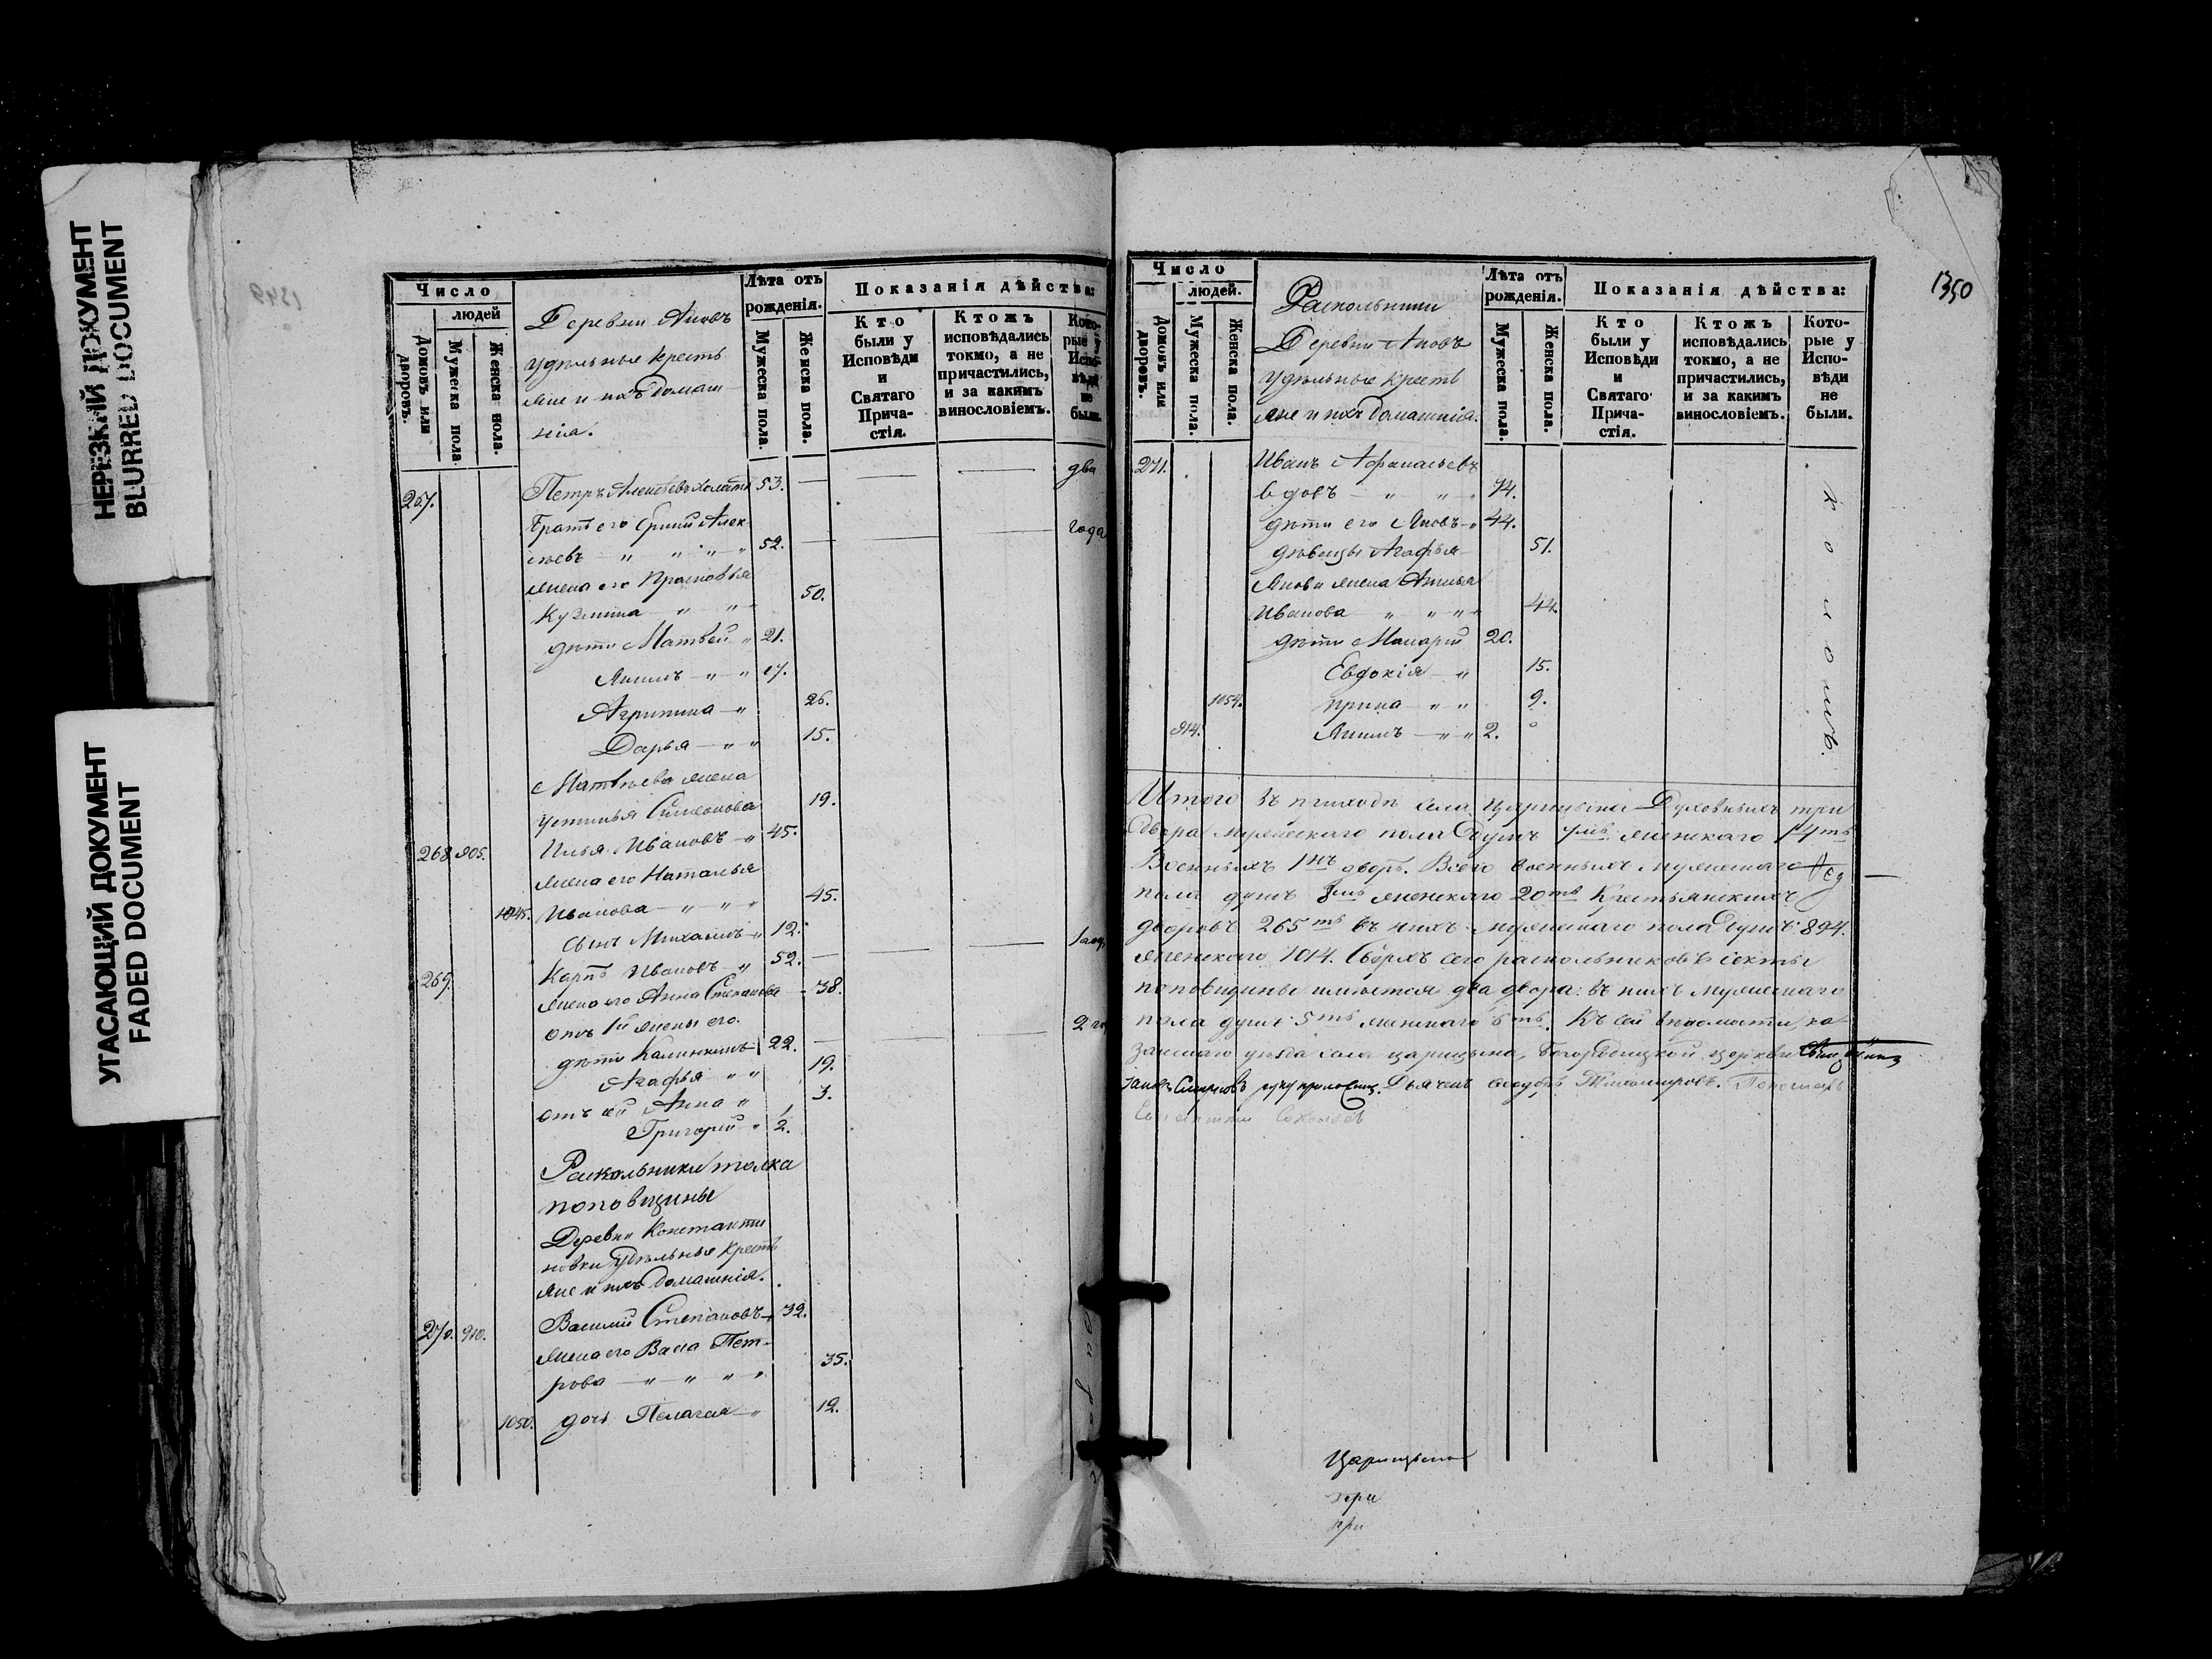 НЕРЕЗКИЙ ДОКУМЕНТ
BLURRED DOCUMENT
УГАСАЮЩИЙ ДОКУМЕНТ
FADED DOCUMENT
Число
людей
Домовъ или дворовъ.
Мужеска пола
Женска пола.
Деревни Аковъ
удѣльные кресть
яне и ихъ домаш
нiя.
Лѣта отъ
рожденiя.
Мужеска пола.
Женска пола.
Показанiя дѣйства:
Кто
были у
Исповѣди
и
Святаго
Прича-
стiя.
Ктожъ
исповѣдались
токмо, а не
причастились,
и за какимъ
винословiемъ.
Кото-
рые у
Испо-
вѣди
не
были.
267. Петръ Алексѣевъ 53. два
братъ его Алек
сѣевъ 52. года
жена его Прасковья
Кузмина 50.
дѣти Матвей 21.
Якимъ 17.
Агрипина 26.
Дарья 15.
Матвѣева жена
Устинья Симеонова 19.
268. 905. Илья Ивановъ 45.
жена его Наталья
1045. Иванова 45.
сынъ Михаилъ 12.
269. Карпъ Ивановъ 52. 1 год
жена его Анна Степанова 38.
отъ 1й жены его.
дѣти 22. 2 го
Агафья 19.
отъ сей Анна 3.
Григорiй 1/2.
Раскольники толка
поповщины
Деревни Константи
новки удѣльные кресть
яне и ихъ домашнiя.
270. 910. Василий Степановъ 32.
жена его Васса Пет-
рова 35.
1050. дочь Пелагея 12.
1350
Число
людей.
Домовъ или дворовъ.
Мужеска пола.
Женска пола.
Раскольники
Деревни Аковъ
удѣльные кресть
яне и ихъ домашнiя.
Лѣта отъ
рожденiя.
Мужеска пола.
Женска пола.
Показанiя дѣйства:
Кто
были у
Исповѣди
и
Святаго
Прича-
стiя.
Ктожъ
исповѣдались
токмо, а не
причастились,
и за какимъ
винословiемъ.
Кото-
рые у
Испо-
вѣди
не
были.
271. Иванъ Афанасьевъ
вдовъ 74.
дѣти его Яковъ 44.
дѣвицы Агафья 51.
Якова жена
Иванова 44.
дѣти Макарiй 20.
Евдокiя 15.
1054. Ирина 9.
914. Якимъ 2.
Итого въ приходѣ села Царицына Духовныхъ три
двора мужескаго пола душъ 7мь женскаго 14ть
Военныхъ 1нъ дворъ. Всего военныхъ мужескаго
пола душъ женскаго 20ть Крестьянскихъ
дворовъ 265ть въ нихъ мужескаго пола душъ 894.
женскаго 1014. Сверхъ сего раскольниковъ секты
поповщины имѣется два двора: въ нихъ мужескаго
пола душъ 5ть женскаго 6ть. Къ сей вѣдомости, ка-
занскаго уѣзда села царицына, Богородицкой церкви
Iаковъ Смирновъ руку приложилъ. Дьячекъ Тихомировъ. Пономарь
Царицына
при
при